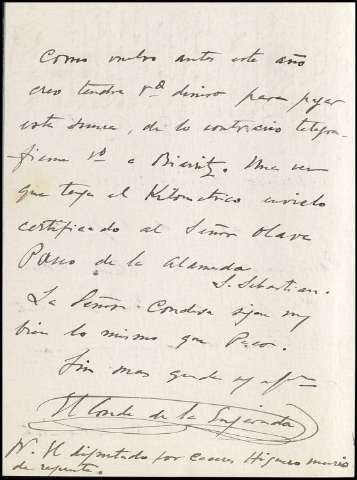 Como vuelvo antes este año
creo tendra Vd dinero para pagar
esta suma, de lo contrario telegra-
fieme Vd a Biarritz. Una vez
que tenga el Kilometrico envielo
certificado al Señor Olava
Paseo de la Alameda
S. Sebastian.
La Señora Condesa sigue muy
bien lo mismo que Paco.
Sin mas quede
El Conde de la
N. El diputado por Caceres Higuero murio
de repente.